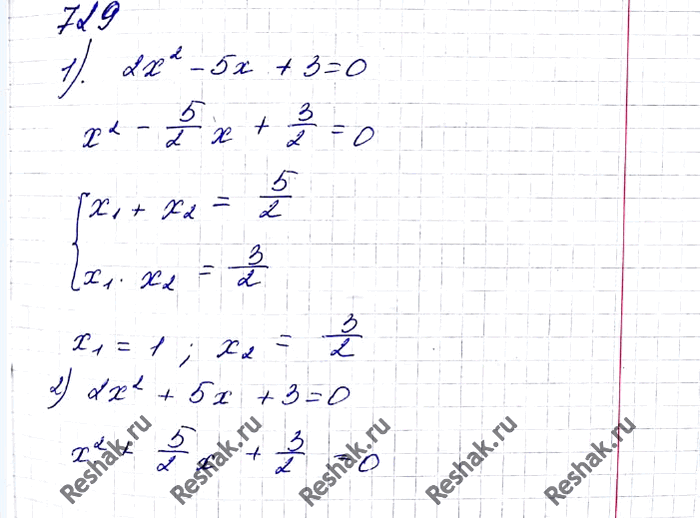 729
1). 2x² - 5x + 3 = 0
x² - 5/2 x + 3/2 = 0
{ x₁ + x₂ = 5/2
x₁ · x₂ = 3/2
x₁ = 1 ; x₂ = 3/2
2) 2x² + 5x + 3 = 0
x² + 5/2 x + 3/2 = 0
Reshak.ru Reshak.ru Reshak.ru Reshak.ru Reshak.ru